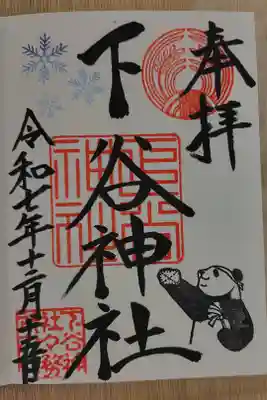 奉拝
下谷神社
下谷
神社
令和七年十二月十五日